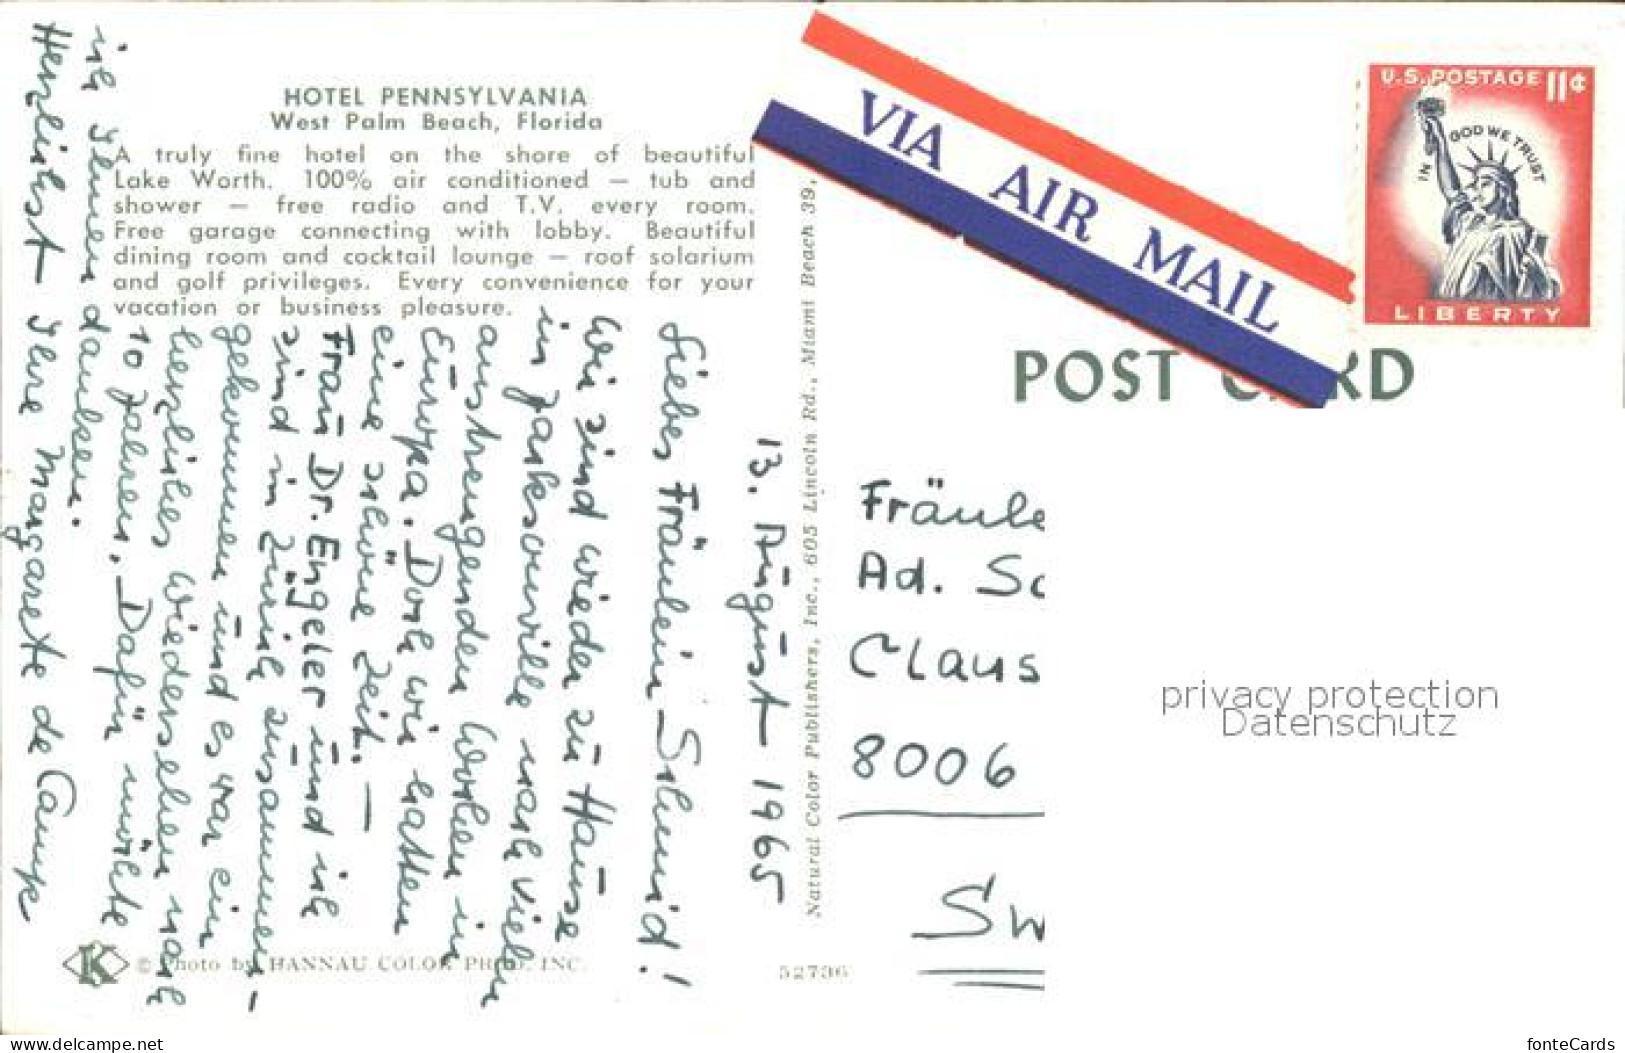 HOTEL PENNSYLVANIA
West Palm Beach, Florida
A truly fine hotel on the shore of beautiful
Lake Worth. 100% air conditioned — tub and
shower — free radio and T.V. every room.
Free garage connecting with lobby. Beautiful
dining room and cocktail lounge — roof solarium
and golf privileges. Every convenience for your
vacation or business pleasure.
13. August 1965
Liebes Fräulein Schmid!
Wir sind wieder zu Hause
in Jacksonville nach vielen
anstrengenden Wochen in
Europa. Doch wir hatten
eine schöne Zeit. —
Frau Dr. Engeler und ich
sind in Zürich zusammen-
gekommen und es war ein
herzliches Wiedersehen nach
10 Jahren. Dafür möchte
ich Ihnen danken.
Herzlichst Ihre Margarete de Camp
K
© Photo by HANNAU COLOR PROD. INC.
52736
Natural Color Publishers, Inc., 605 Lincoln Rd., Miami Beach 39,
VIA AIR MAIL
U.S. POSTAGE 11¢
IN GOD WE TRUST
LIBERTY
POST CARD
Fräule
Ad. Sc
Claus
8006
Sw
privacy protection
Datenschutz
www.delcampe.net
fonteCards